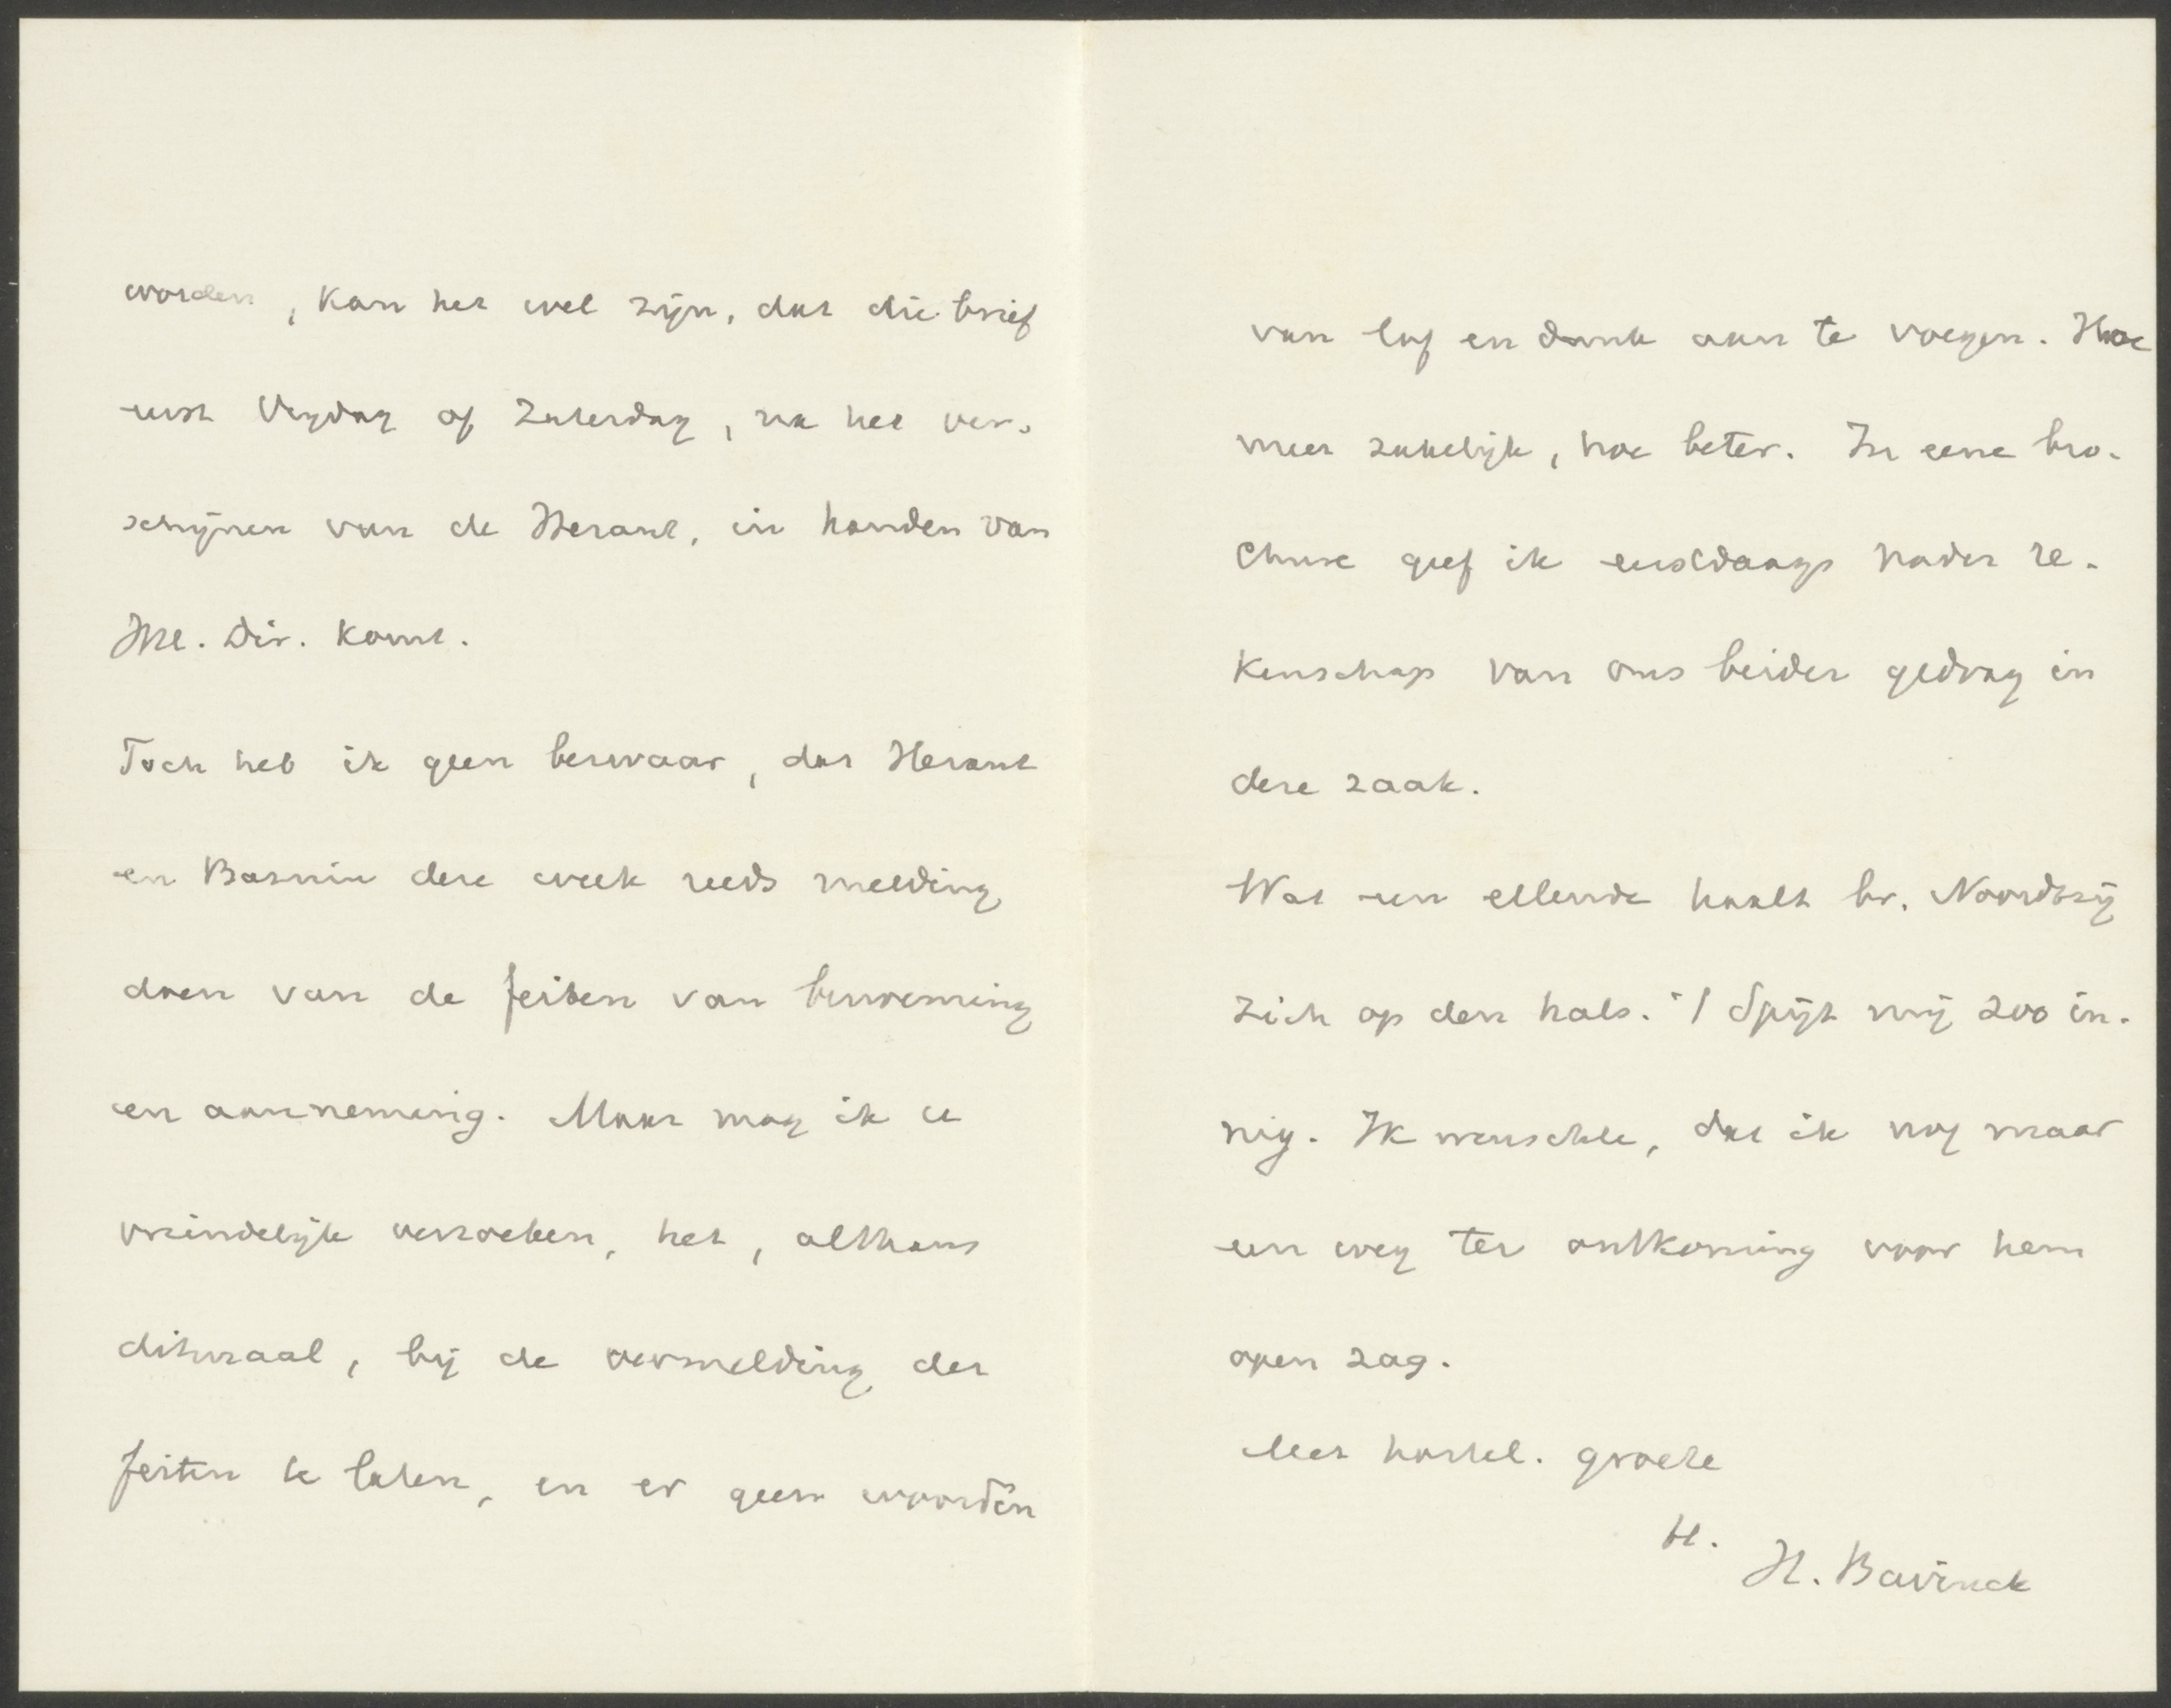 worden, kan het wel zijn, dat die brief
eerst Vrijdag of Zaterdag, na het ver-
schijnen van de Heraut, in handen van
HH. Dir. komt.
Toch heb ik geen bezwaar, dat Heraut
en Bazuin deze week reeds melding
doen van de feiten van benoeming
en aanneming. Maar mag ik u
vriendelijk verzoeken, het, althans
ditmaal, bij de vermelding der
feiten te laten, en er geen woorden
van lof en dank aan te voegen. Hoe
meer zakelijk, hoe beter. In eene bro-
chure geef ik eerstdaags nader re-
kenschap van ons beider gedrag in
deze zaak.
Wat een ellende haalt br. Noordtzij
zich op den hals. 't Spijt mij zoo in-
nig. Ik wenschte, dat ik nog maar
een weg ter ontkoming voor hem
open zag.
Met hartel. groete
H. Bavinck